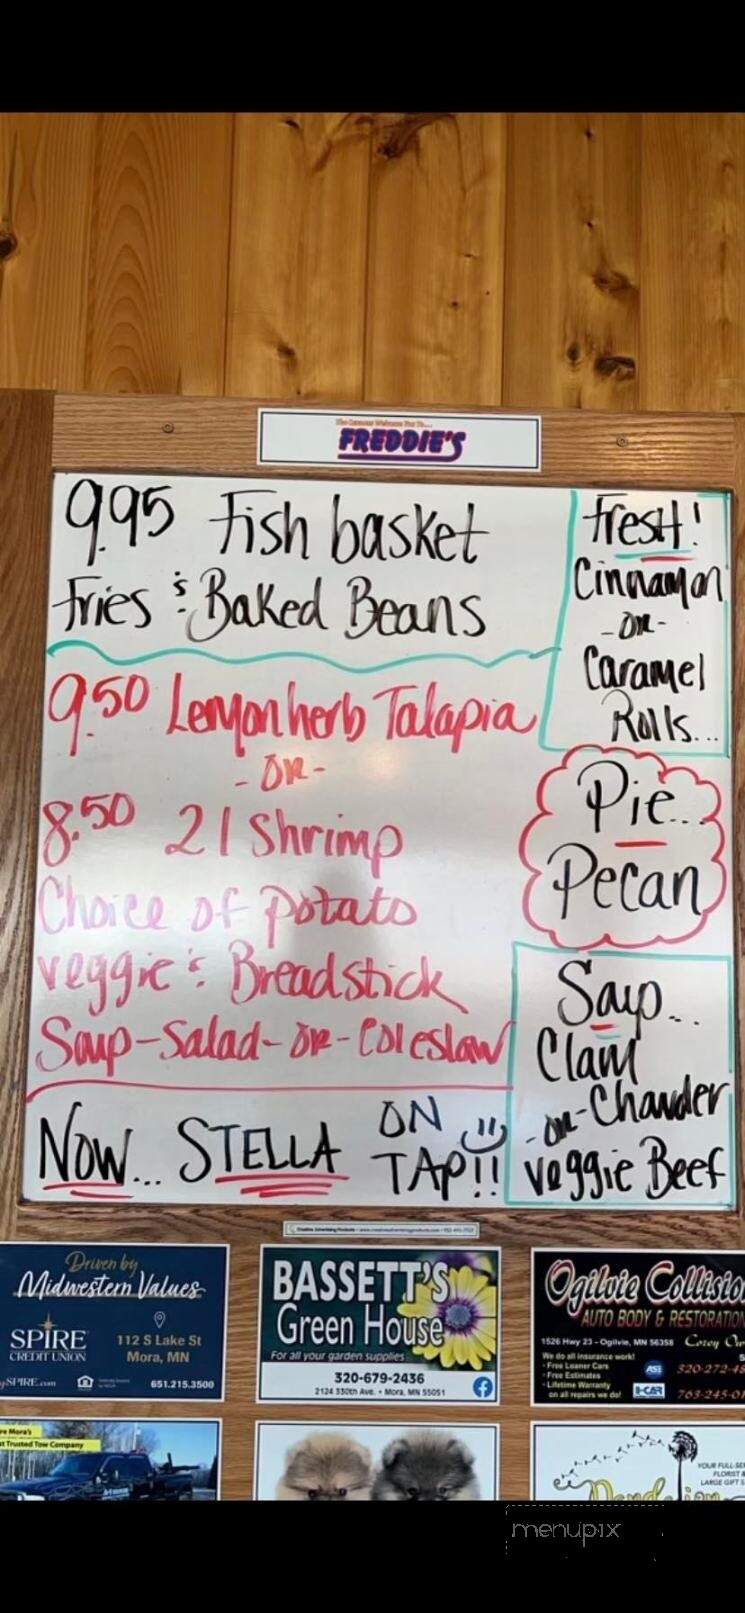 FREDDIE'S
9.95 Fish basket
Fries & Baked Beans
9.50 Lemon herb Talapia
- OR -
8.50 21 Shrimp
Choice of Potato
Veggie & Breadstick
Soup-Salad-OR-Coleslaw
NOW... STELLA ON TAP!!
Fresh!
Cinnamon
- OR -
Caramel
Rolls...
Pie...
Pecan
Soup...
Clam
Chowder
- OR -
Veggie Beef
Driven by
Midwestern Values
SPIRE
CREDIT UNION
112 S Lake St
Mora, MN
651.215.3500
BASSETT'S
Green House
For all your garden supplies
320-679-2436
2124 330th Ave. • Mora, MN 55051
Ogilvie Collisio
AUTO BODY & RESTORATION
1526 Hwy 23 - Ogilvie, MN 56358
We do all insurance work!
• Free Loaner Cars
• Free Estimates
• Lifetime Warranty
on all repairs we do!
ASE
I-CAR
320-272-4
763-245-01
t Trusted Tow Company
YOUR FULL-SE
FLORIST &
LARGE GIFT S
menupix